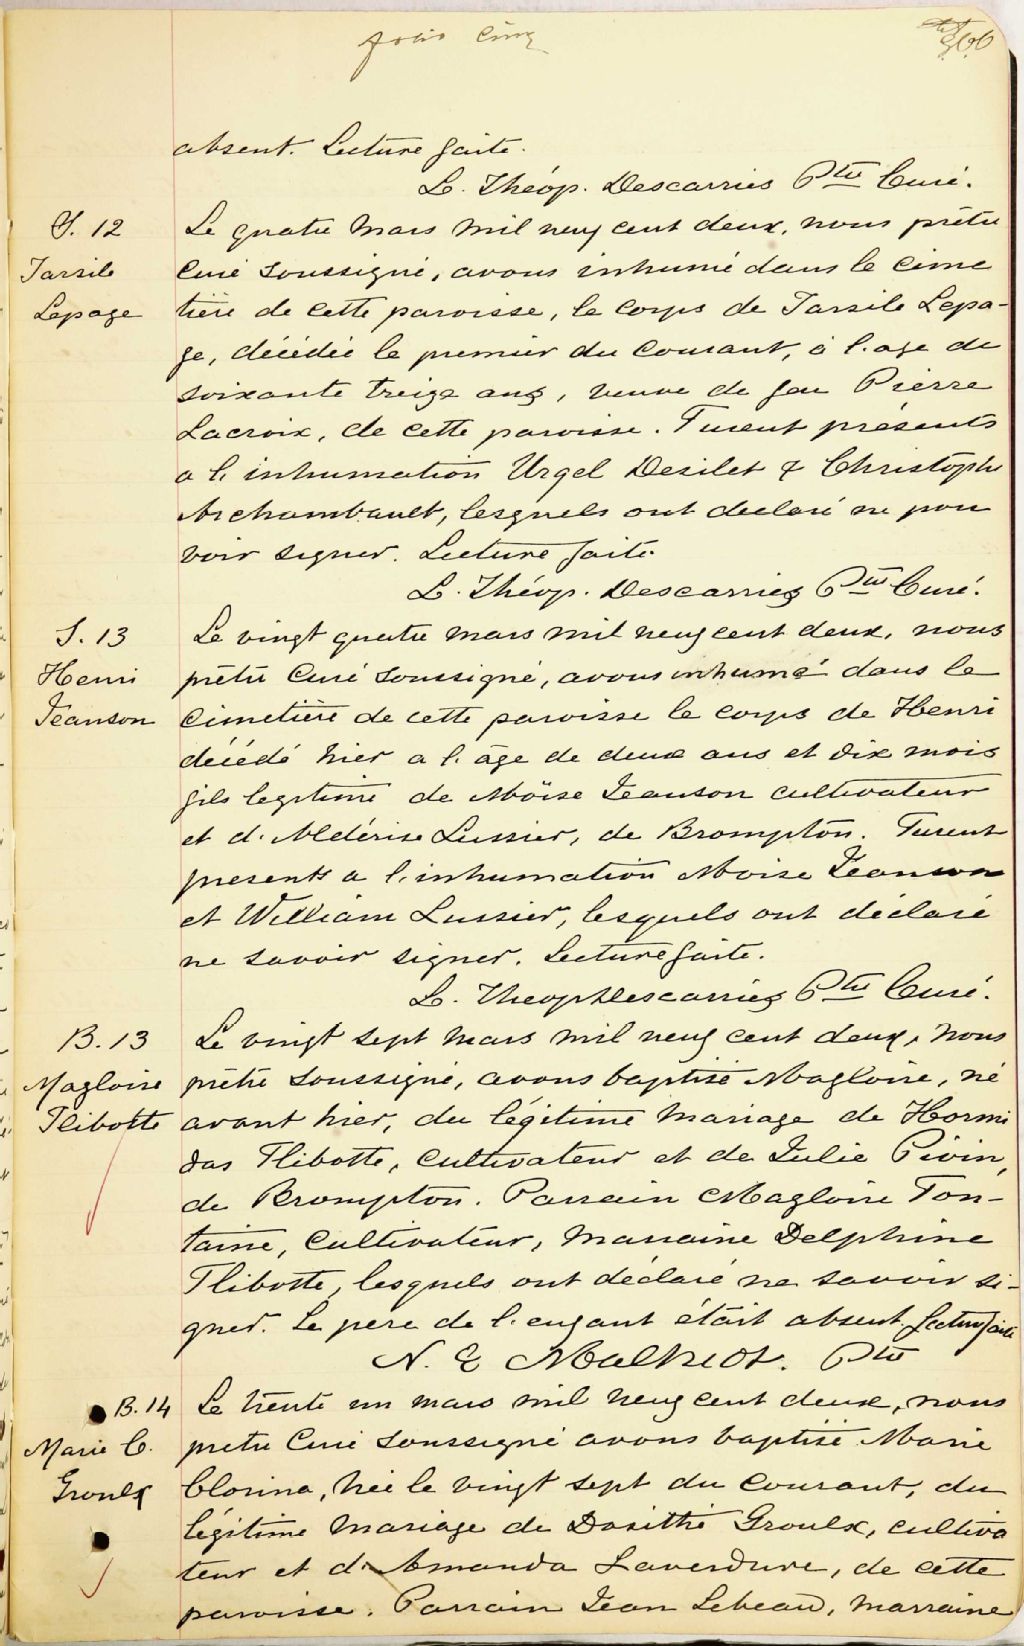 folio cinq
absent. Lecture faite.
L. Théop. Descarries Ptre Curé.
S. 12
Tarsile
Lepage
Le quatre mars mil neuf cent deux, nous prêtre
Curé soussigné, avons inhumé dans le cime
tière de cette paroisse, le corps de Tarsile Lepa-
ge, décédée le premier du courant, à l'age de
soixante treize ans, veuve de feu Pierre
Lacroix, de cette paroisse. Furent présents
a l'inhumation Urgel Desilet & Christophe
Archambault, lesquels ont declaré ne pou
voir signer. Lecture faite.
L. Théop. Descarries Ptre Curé.
S. 13
Henri
Jeanson
Le vingt quatre mars mil neuf cent deux, nous
prêtre Curé soussigné, avons inhumé dans le
Cimetière de cette paroisse le corps de Henri
décédé hier a l'âge de deux ans et dix mois
fils legitime de Moïse Jeanson cultivateur
et d'Aldérise Lussier, de Brompton. Furent
presents a l'inhumation Moise Jeanson
et William Lussier, lesquels ont déclaré
ne savoir signer. Lecture faite.
L. Theop Descarries Ptre Curé.
B. 13
Magloire
Flibotte
Le vingt sept mars mil neuf cent deux, nous
prêtre soussigné, avons baptisé Magloire, né
avant hier, du légitime mariage de Hormi
das Flibotte, cultivateur et de Julie Pivin,
de Brompton. Parrain Magloire Fon-
taine, Cultivateur, marraine Delphine
Flibotte, lesquels ont déclaré ne savoir si-
gner. Le pere de l'enfant était absent. Lecture faite
N. E Malhiot. Ptre
B. 14
Marie C.
Groulx
Le trente un mars mil neuf cent deux, nous
pretre Curé soussigné avons baptisé Marie
Clorina, née le vingt sept du courant, du
légitime mariage de Dosithé Groulx, cultiva
teur et d'Amanda Laverdure, de cette
paroisse. Parrain Jean Lebeau, marraine